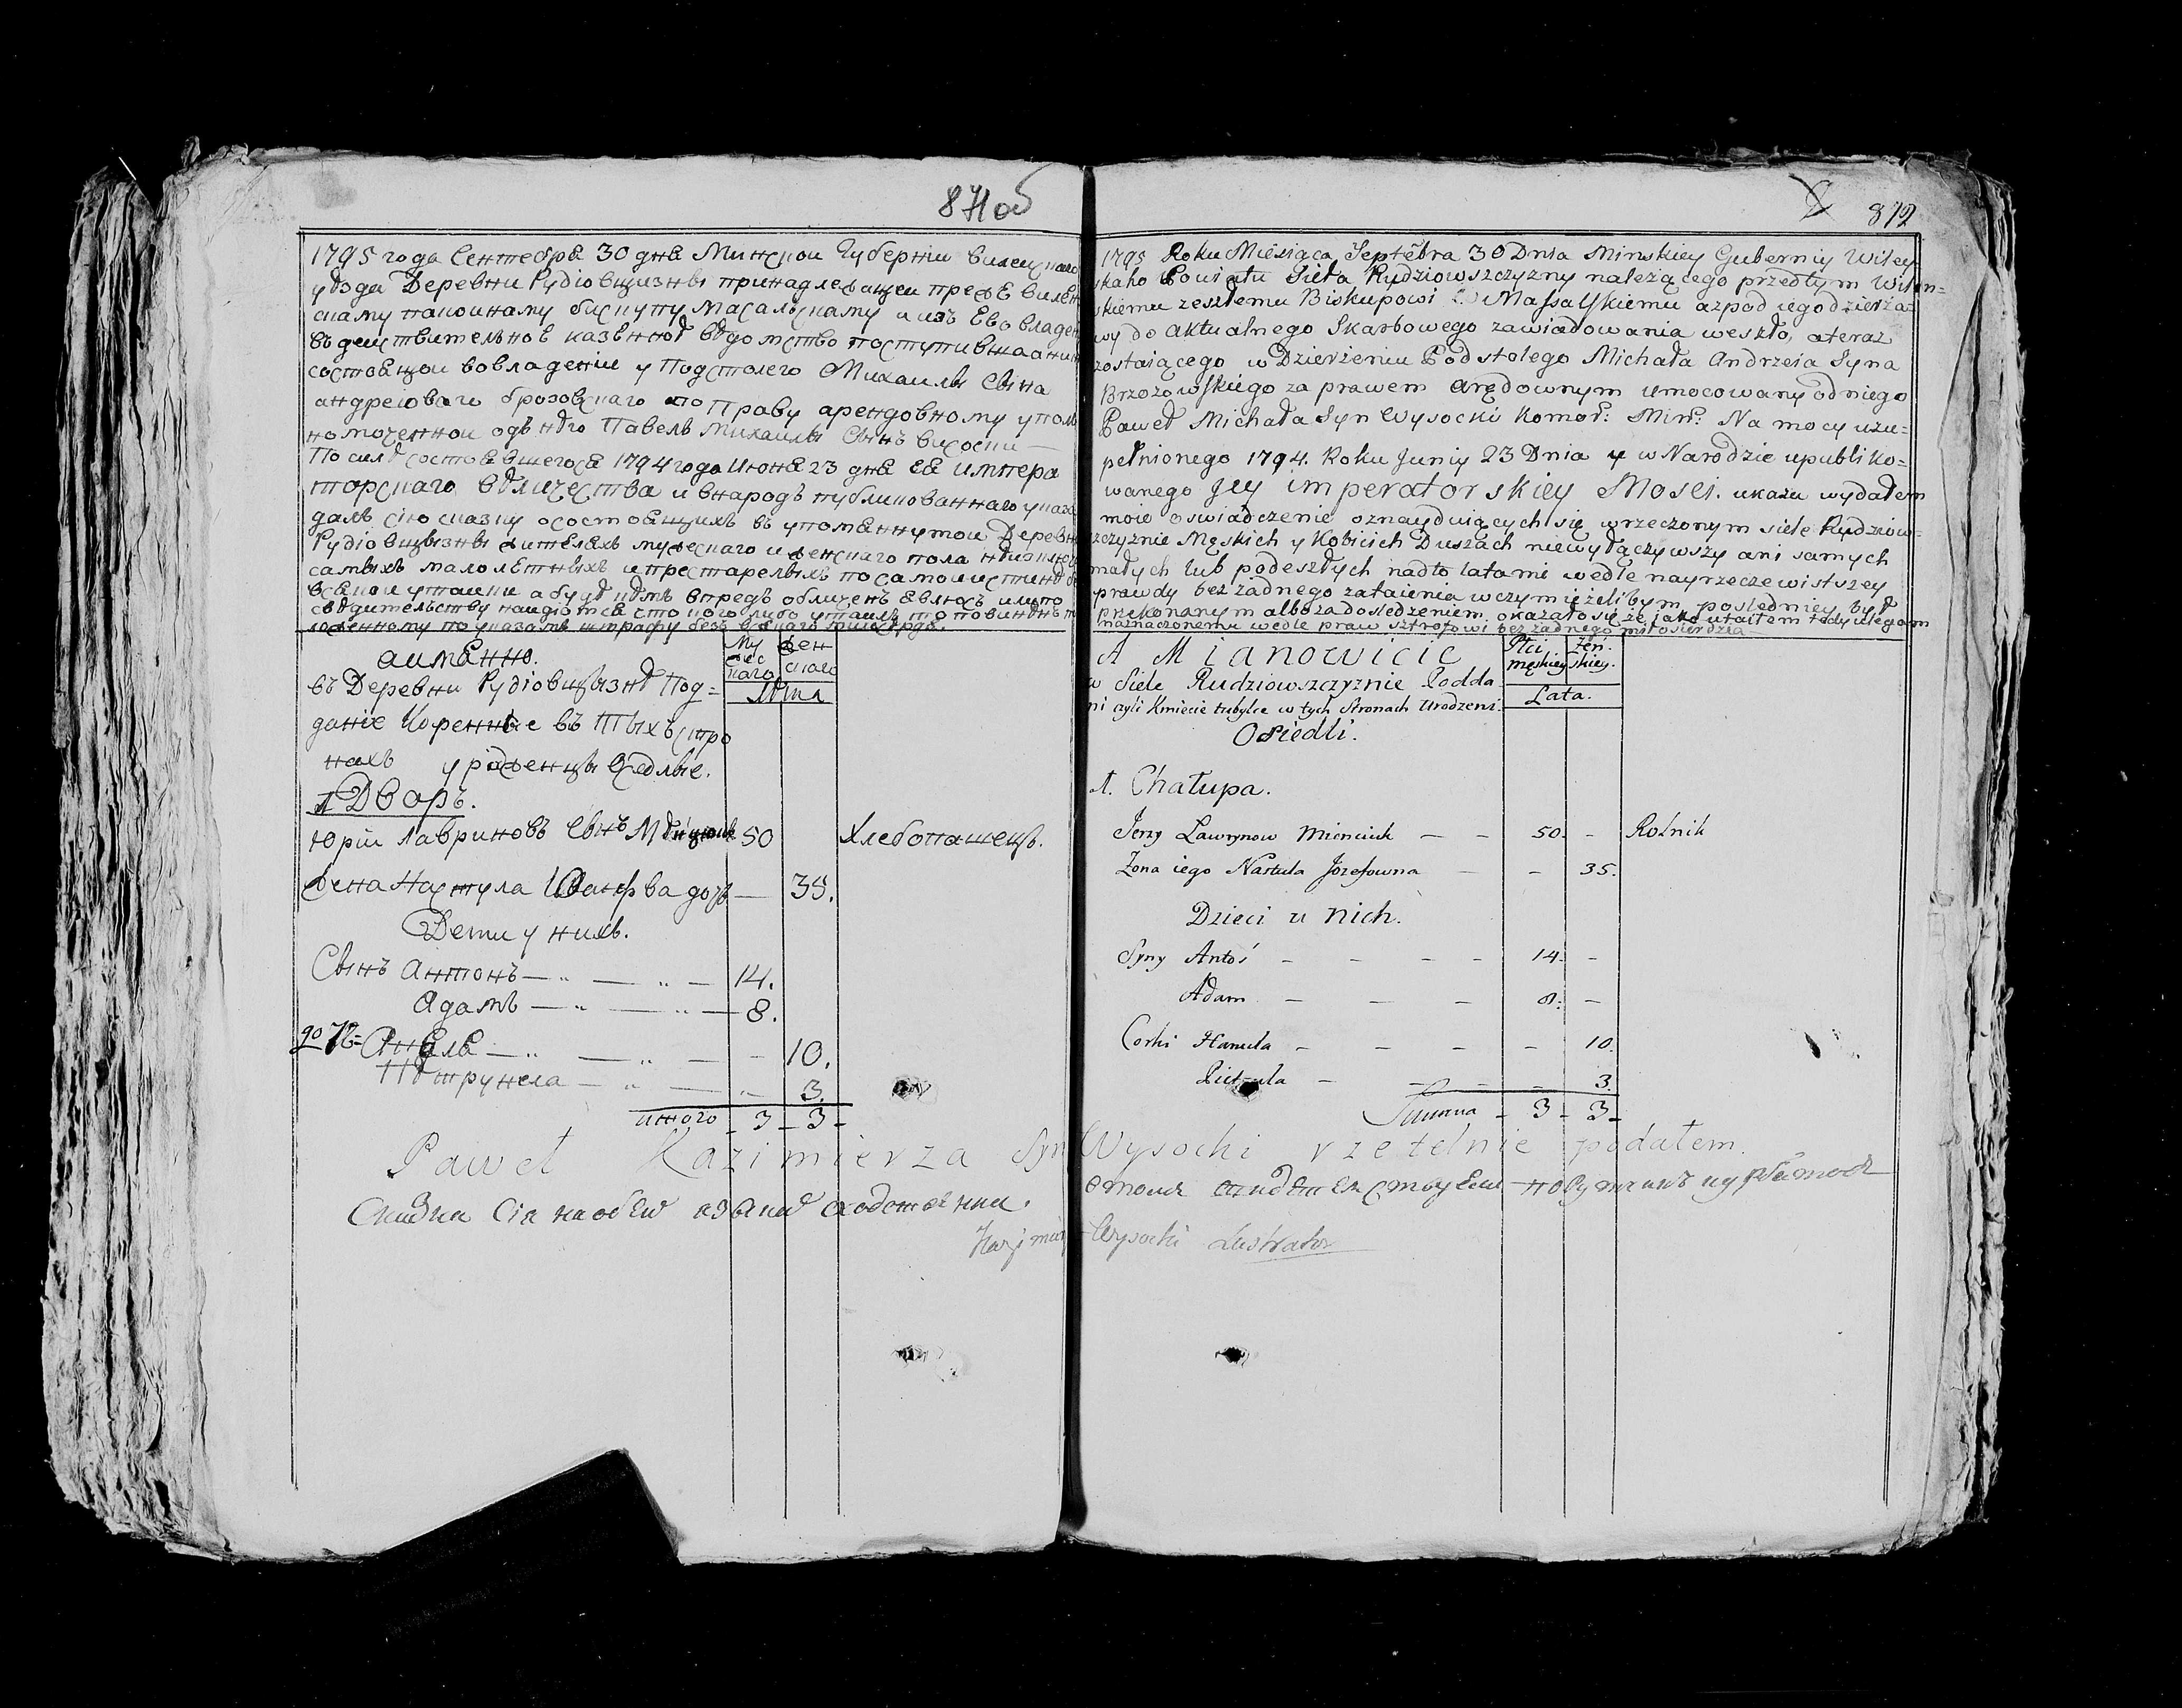 871 об
1795 года Сентебра 30 дня Минской Губернии вилейскаго
уѣзда Деревни Рудіовщизны принадлежащей преже виленскому
покойному бискупу Масальскому и изъ Ево владенія
въ дѣйствительноѣ казѣнноѣ вѣдомство поступившаа а нинѣ
состоящой во владеніи у Подстолего Михаилы Сына
андреіоваго брозовскаго по Праву арендовному уполь
номоченной одъ нѣго Павель Михаилы Сынъ висоцки
По силѣ состоявшегося 1794 года Июня 23 дня Ея импера
торскаго вѣличества и внародъ публикованнаго указа
далъ сію сказку о состоящихъ въ упомянутой Деревни
Рудіовщызны жителяхъ мужескаго и женскаго пола
самыхъ малолѣтныхъ и престарелыхъ по самой истинѣ
аимянно.
Му жес каго
жен скаго
Лѣта
въ Деревни Рудіовщызнѣ Под=
даніе Коренные въ тыхъ стро
нахъ уроженцы Оседлые.
1 Дворъ.
Юрій Лавриновъ Сынъ 50 Хлебопашецъ.
Жена Настула дочь — 35.
Дети у нихъ.
Сынъ Антонъ — „ — „ — 14.
Адамъ — „ — „ — 8.
дочь= Анеля — „ — „ — — 10.
Пѣтрунела — „ — „ — 3.
итого - 3 - 3 -
Paweł Kazimierza Syn
872
1795 Roku Miesiąca Septêbra 30 Dnia Minskiey Guberniy Wiley
skaho Powiatu Sieła Rudziowszczyzny należącego przedtym Wilen=
skiemu zeszłemu Biskupowi Massalskiemu a zpod iego dzierża=
wy do aktualnego Skarbowego zawiadowania weszło, a teraz
zostaiącego w Dzierżeniu Podstolego Michała Andrzeia Syna
Brzozowskiego za prawem arędownym umocowany od niego
Paweł Michała Syn Wysocki Komor: Miń: Na mocy uzu=
pełnionego 1794. Roku Juniy 23 Dnia y w Narodzie upubliko=
wanego Jey imperatorskiey Mosci. ukazu wydałem
moie oswiadczenie oznayduiących się w rzeczonym siele Rudziow=
szczyznie Męskich y Kobicich Duszach niewyłączywszy ani samych
małych lub podeszłych nadto latami wedle nayrzeczewistszey
prawdy bez żadnego zataienia w czym ieżelibym posledniey był
przekonanym albo za dosledzeniem okazało się że iako utaiłem tedy ulegam
naznaczonemu wedle praw sztrofowi bez żadnego miłosierdzia
A Mianowicie
Płci męskiey
żeń. skiey.
Lata.
w Siele Rudziowszczyznie Podda
ni czyli Kmiecie tubylce w tych Stronach Urodzeni.
Osiedli.
1. Chałupa.
Jerzy Lawrynow Mienciuk — — 50. - Rolnik
Zona iego Nastula Jozefowna — - 35.
Dzieci u nich.
Syny Antoś — — — — 14. -
Adam — — — 8. —
Corki Hanula — — — — 10.
— — — — 3.
Summa - 3 - 3 -
Wysocki rzetelnie podałem.
Kazimierz Wysocki Lustrator